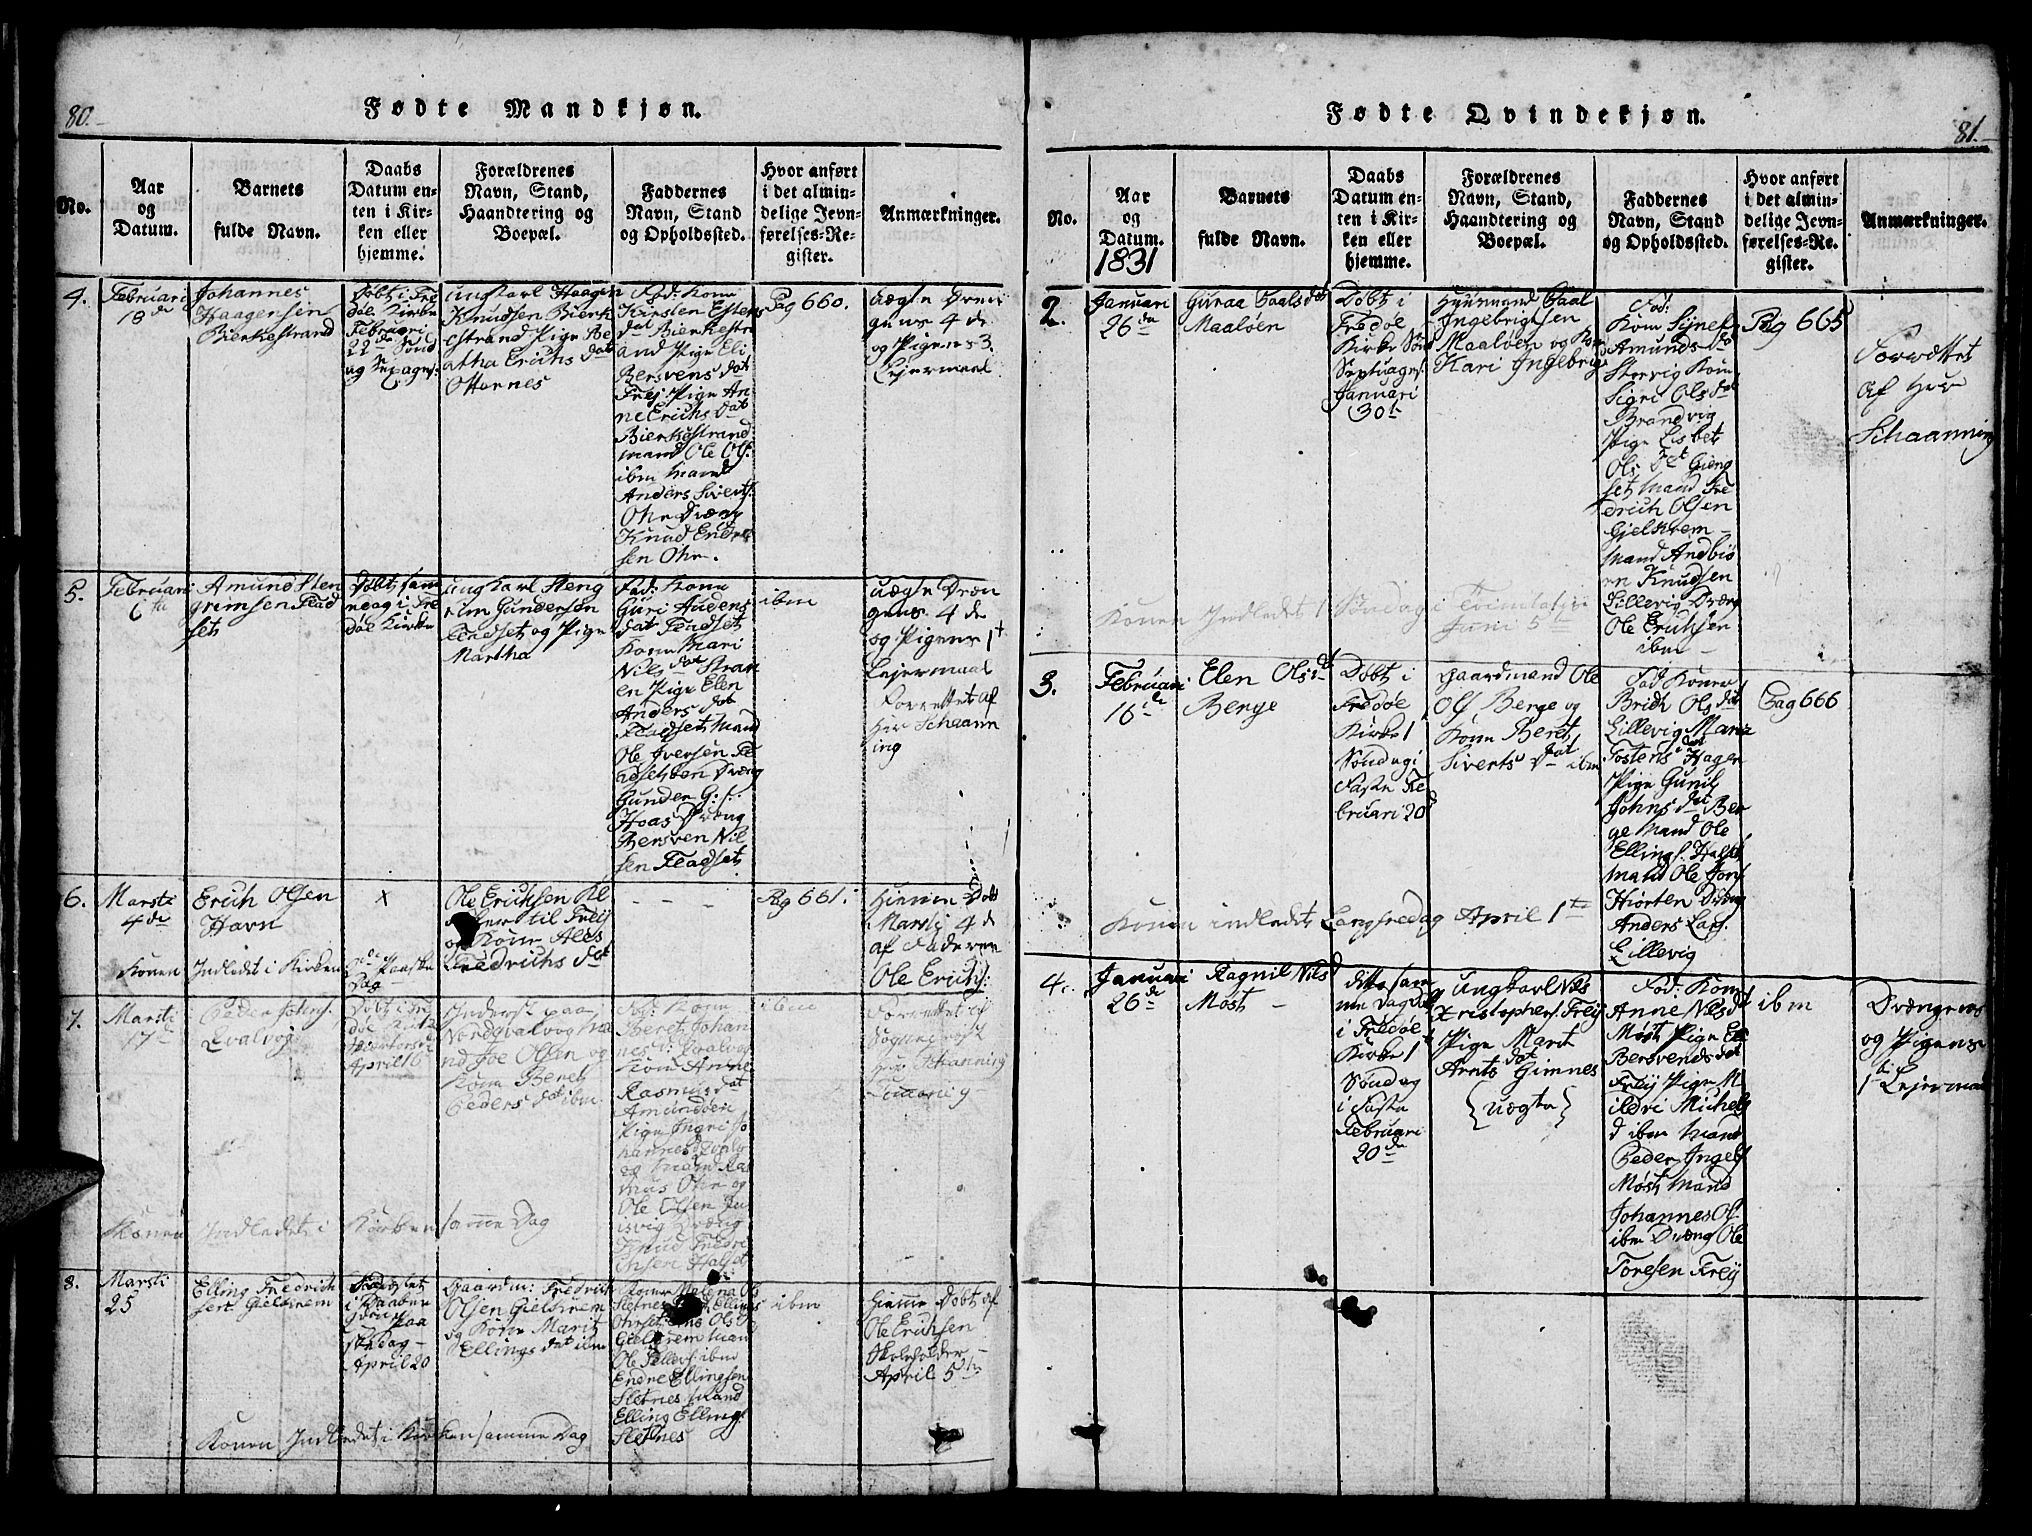 80.
Fødte Mandkjøn.
No.
Aar
og
Datum.
Barnets
fulde Navn.
Daabs
Datum en-
ten i Kir-
ken eller
hjemme.
Forældrenes
Navn, Stand,
Haandtering og
Boepæl.
Faddernes
Navn, Stand
og Opholdssted.
Hvor anført
i det almin-
delige Jevn-
førelses-Re-
gister.
Anmærkninger.
4.
Februari
18de
Johannes
Haagensen
Bierkestrand
Døbt i Fre
døe Kirke
Februari
22de Sønd
ag Sexages.
ungkarl Haagen
Knudsen Bierk
estrand Pige Be
atha Erichs dat
Otternes
Fad: Kone
Kirsten Estens
dat Bierkestr
and Pige Eli
Bersvens dat
Frej Pige An
ne Erichs dat
Bierkestrand
mand Ole Ols.
ibm Mand
Anders Sivers.
Ohr Dræng
Knud Endre
sen Ohr.
Pag 660.
uægte Dren
gens 4de
og Pigens 3
Lejermaal
5.
Februari
6te
Amund Sten
grimsen Flad
set
Døbt sam
me dag i Fre
døe Kirke
ungkarl Steng
rim Gundersen
Fladset og Pige
Martha
Fad: Kone
Guri Audens
dat Fladset
Kone Mari
Nils dat Stran
en Pige Elen
Anders dat
Fladset Mand
Ole Iversen Fl
adset
Gunder G: s:
Hoas Dreng
Bersven Nil
sen Fladset
ibm
uægte Dren
gens 4de
og Pigens 1t
Lejermaal
Forrettet af
Hr Schaann
ing
6.
Marsti
4de
Erich Olsen
Havn
x
Ole Erichsen Kl
til Frej
og Kone Ales
Fredrichs dat
- - -
Pag 661.
Hiemme Døbt
Marsti 4d
af Faderen
Ole Erichs:
Konen Indledet i Kirken 2nden Paaske
Dag
7.
Marsti
17de
Peder Johns.
Qvalvog
Døbt i Fre
døe Kirke
April
paa
Nordqvalvog Ma
nd Joe Olsen og
Kone Beret
Peders dat ibm
Fad: Kone
Beret Johan
nes d: Qvalvog
Kone Anne
Rasmus dat
Amundøen
Pige Ingri Jo
hannes d
Mand Ras
mus Ohr og
Ole Olsen
Dræng
Knud Fredri
chsen Halset
ibm
Forrettet af
Sogneprest
Herr Schanning
Konen Indledet i Kirken samme Dag
8.
Marsti
25
Elling Fredrich
sen Gielsnem
i Daaben
Paa
ske Dag
April 20
Gaardm: Fredrich
Olsen Gielsnem
og Kone Marit
Ellings dat ibm
Kone Malena Ol
Sletnes Ellings
Ohrset Ols
Gielsrem Man
Ole ibm
Endre Ellingsen
Sletnes Mand
Elling Ellings.
Sletnes
ibm
Hiemme Døbt af
Ole Erichsen
Skoleholder
April 5te
Konen Indledet i Kirken samme Dag
81.
Fødte Qvindekjøn.
No.
Aar
og
Datum.
1831
Barnets
fulde Navn.
Daabs
Datum en-
ten i Kir-
ken eller
hjemme.
Forældrenes
Navn, Stand,
Haandtering og
Boepæl.
Faddernes
Navn, Stand
og Opholdssted.
Hvor anført
i det almin-
delige Jevn-
førelses-Re-
gister.
Anmærkninger.
2.
Januari
26de
Guraa Paals dat
Maaløen
Døbt i
Fredøe
Kirke Sønd
Septuages.
Januari
30te
Huusmand Paal
Ingebrigtsen
Maaløen og Kone
Kari Ingebrigs
Fad:
Kone Signe
Amunds d
Storvig Kone
Sigri Ols dat
Brandvig
Pige Lisbet
Ols dat Gieng
set Mand Fre
drich Olsen
Gjelsnem
Mand Andbiø
rn Knudsen
Lillevig Dræng
Ole Erichsen
ibm
Pag 665
Forrættet
af Herr
Schaanning
Konen Indledet 1 Søndag i Trinitatis
Juni 5te
3.
Februari
16de
Elen Ols d
Berge
Døbt i
Fredøe
Kirke 1
Søndag i
Faste Fe
bruari 20de
Gaardmand Ole
Ols Berge og
Kone Beret
Siverts dat ibm
Fad Konen
Brith Ols dat
Lillevig Mari
Fostens dat Hagen
Pige Gunil
Johns dat Ber
ge Mand Ole
Ellings. Halset
Mand Ole Jons
Hiorten Dreng
Anders Lars.
Lillevig
Pag 666
Konen indledet Langfredag April 1te
4.
Januari
26de
Ragnil Nils d
Møst
ditto sam
me Dag Døbt
i Fredøe
Kirke 1
Søndag
i Faste
Februari
20de
Ungkarl Nils
Kristophers. Frej
Pige Marit
Arnts dat Gimnes
{uægte}
Fad: Kone
Anne Nils dt
Møst Pige Eli
Bersvends dat
Frej Pige M
ildri Michels
d ibm Mand
Peder Ingels
Møst Mand
Johannes Ols
ibm Dræng Ole
Toresen Frej
ibm
Drængens
og Pigens
1te Lejermaal